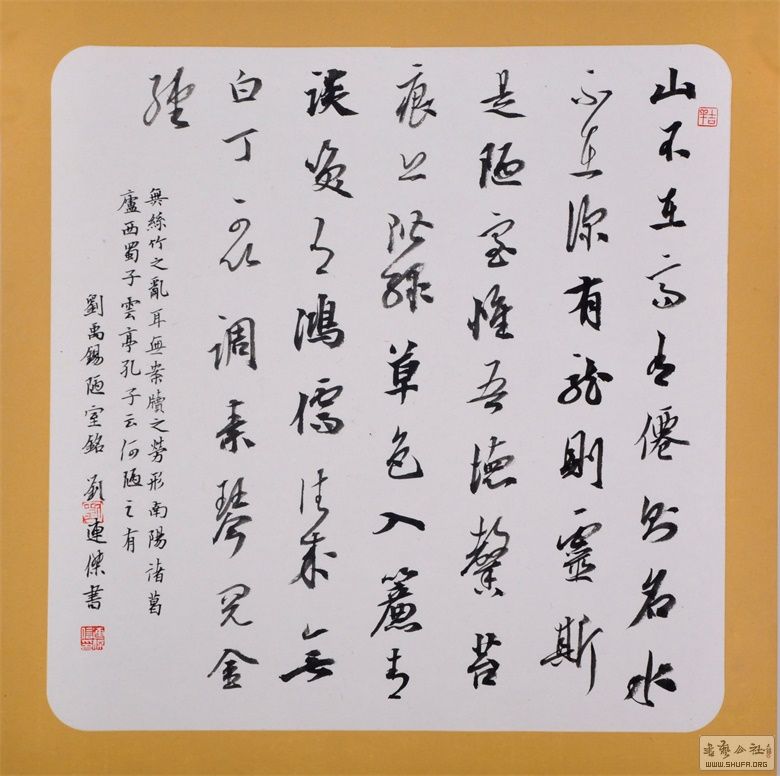 山不在高有僊則名水
不在深有龍則靈斯
是陋室惟吾德馨苔
痕上階綠草色入簾青
談笑有鴻儒往來無
白丁可以調素琴閱金
經
無絲竹之亂耳無案牘之勞形南陽諸葛
廬西蜀子雲亭孔子云何陋之有
劉禹錫陋室銘 劉連傑書
WWW.SHUFA.ORG